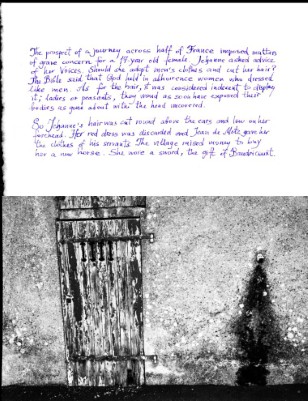 The prospect of a journey across half of France imposed matters
of grave concern for a 19-year old female. Jehanne asked advice
of her Voices. Should she adopt men's clothes and cut her hair?
The Bible said that God held in abhorrence women who dressed
like men. As for the hair, it was considered indecent to display
it; ladies or peasants, they would as soon have exposed their
bodies as gone about with the head uncovered.
So Jehanne's hair was cut round above the ears and low on her
forehead. Her red dress was discarded and Jean de Metz gave her
the clothes of his servants. The village raised money to buy
her a new horse. She wore a sword, the gift of Baudricourt.